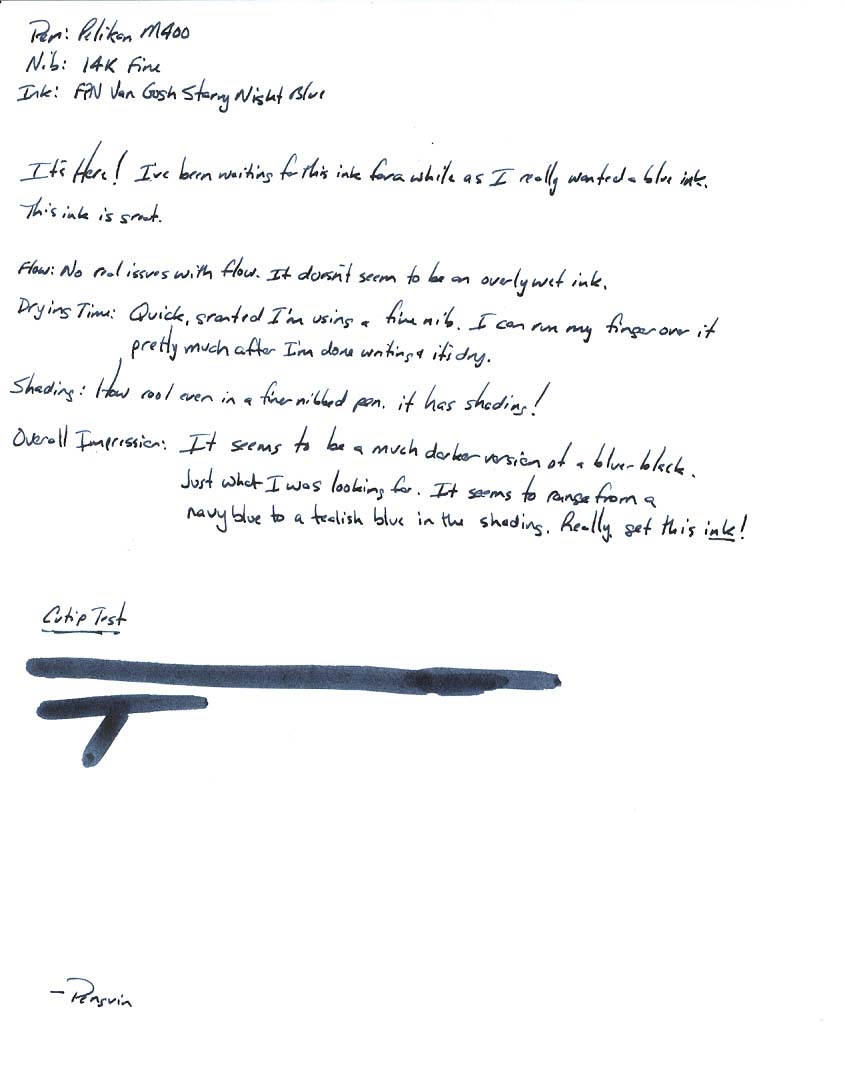 Pen: Pelikan M400
Nib: 14K Fine
Ink: FPN Van Gogh Starry Night Blue
It's Here! I've been waiting for this ink for a while as I really wanted a blue ink.
This ink is great.
Flow: No real issues with flow. It doesn't seem to be an overly wet ink.
Drying Time: Quick, granted I'm using a fine nib. I can run my finger over it
pretty much after I'm done writing & it's dry.
Shading: How cool even in a finer nibbed pen. it has shading!
Overall Impression: It seems to be a much darker version of a blue-black.
Just what I was looking for. It seems to range from a
navy blue to a tealish blue in the shading. Really, get this ink!
Qutip Test
- Penguin